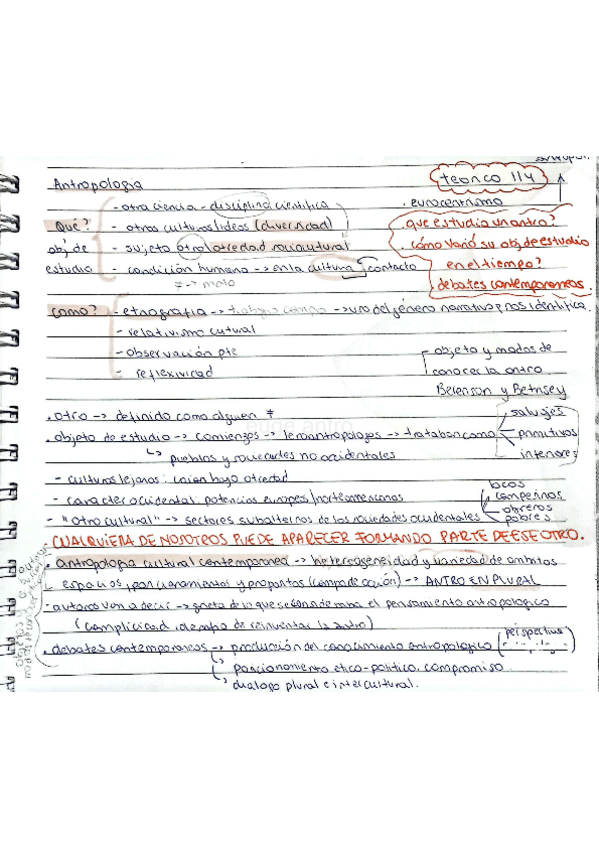 Antropologia
teorico 11/4
- otra ciencia - disciplina cientifica
. eurocentrismo
Qué?
- otras culturas/ideas (diversidad)
. que estudia un antro?
obj de
- sujeto otro/otredad sociocultural
. cómo varió su obj de estudio
en el tiempo?
estudio
- condición humana -> en la cultura contacto
≠ -> moto
. debates contemporaneos.
como?
- etnografia -> trabajo campo -> uso del género narrativo, nos identifica.
- relativismo cutural
- observación pte
- reflexividad
objeto y modos de
conocer la antro.
. otro -> definido como alguien ≠
. objeto de estudio -> comienzos -> 1eros antropologos -> trataban como
salvajes
primitivos
inferiores
↳ pueblos y sociedades no occidentales
- culturas lejanas: caian bajo otredad
- caracter occidental potencias europeas/norteamericanas
- "otro cultural" -> sectores subalternos de las sociedades occidentales
locos
campesinos
obreros
pobres
. CUALQUIERA DE NOSOTROS PUEDE APARECER FORMANDO PARTE DE ESE OTRO.
. antropologia cultural contemporanea -> heterogeneidad y variedad de ambitos
espacios, posicionamientos y propositos (campo de acción) -> ANTRO EN PLURAL
. autores van a decir -> grieta de lo que se consideraba el pensamiento antropologico
(complicidad, ejemplo de reinventar la antro)
. debates contemporaneos -> producción del conocimiento antropologico (perspectivas
↳ posicionamiento etico-politico, compromiso
↳ dialogo plural e intercultural.
euge.antro